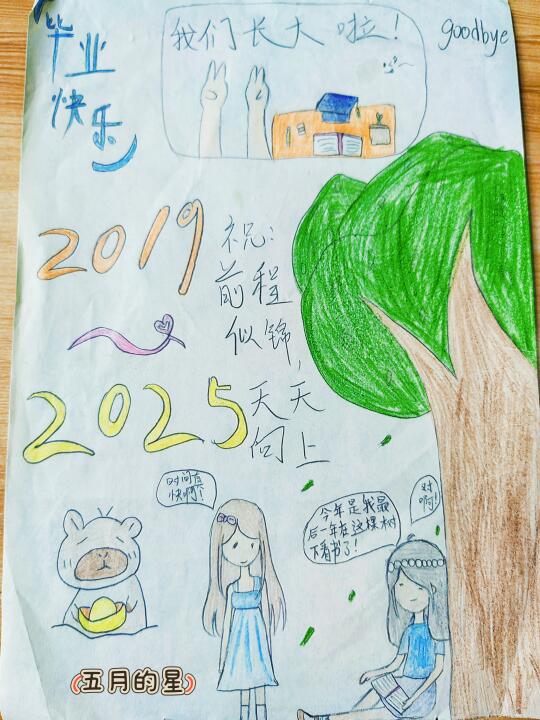 毕业
快乐
我们长大啦！
goodbye
2019
2025
祝：
前程
似锦，
天天
向上
时间真
快啊！
今年是我最
后一年在这棵树
下看书了！
对
啊！
五月的星